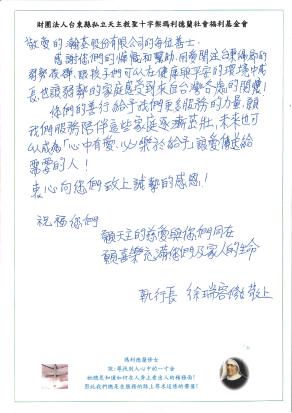 財團法人台東縣私立天主教聖十字架瑪利德蘭社會福利基金會
敬愛的瀚荃股份有限公司的每位善士：
感謝你們的慷慨和幫助，因著關注台東偏鄉的
弱勢孩群，讓孩子們可以在健康與平安的環境中成
長，也讓弱勢的家庭感受到來自台灣各處的關愛！
你們的善行給予我們更多服務的力量，願
我們服務陪伴這些家庭逐漸茁壯，未來也可
以成為「心中有愛，以樂於給予」讓愛傳遞給
需要的人！
衷心向您們致上誠摯的感恩！
祝福你們
願天主的慈愛與你們同在
願喜樂充滿您們及家人的生命
執行長 徐瑞容 敬上
瑪利德蘭修女
說：尋找別人心中的一寸金
她總是知道如何在人身上看出人的積極面！
因此我們總是在服務的路上尋求這樣的寶藏！